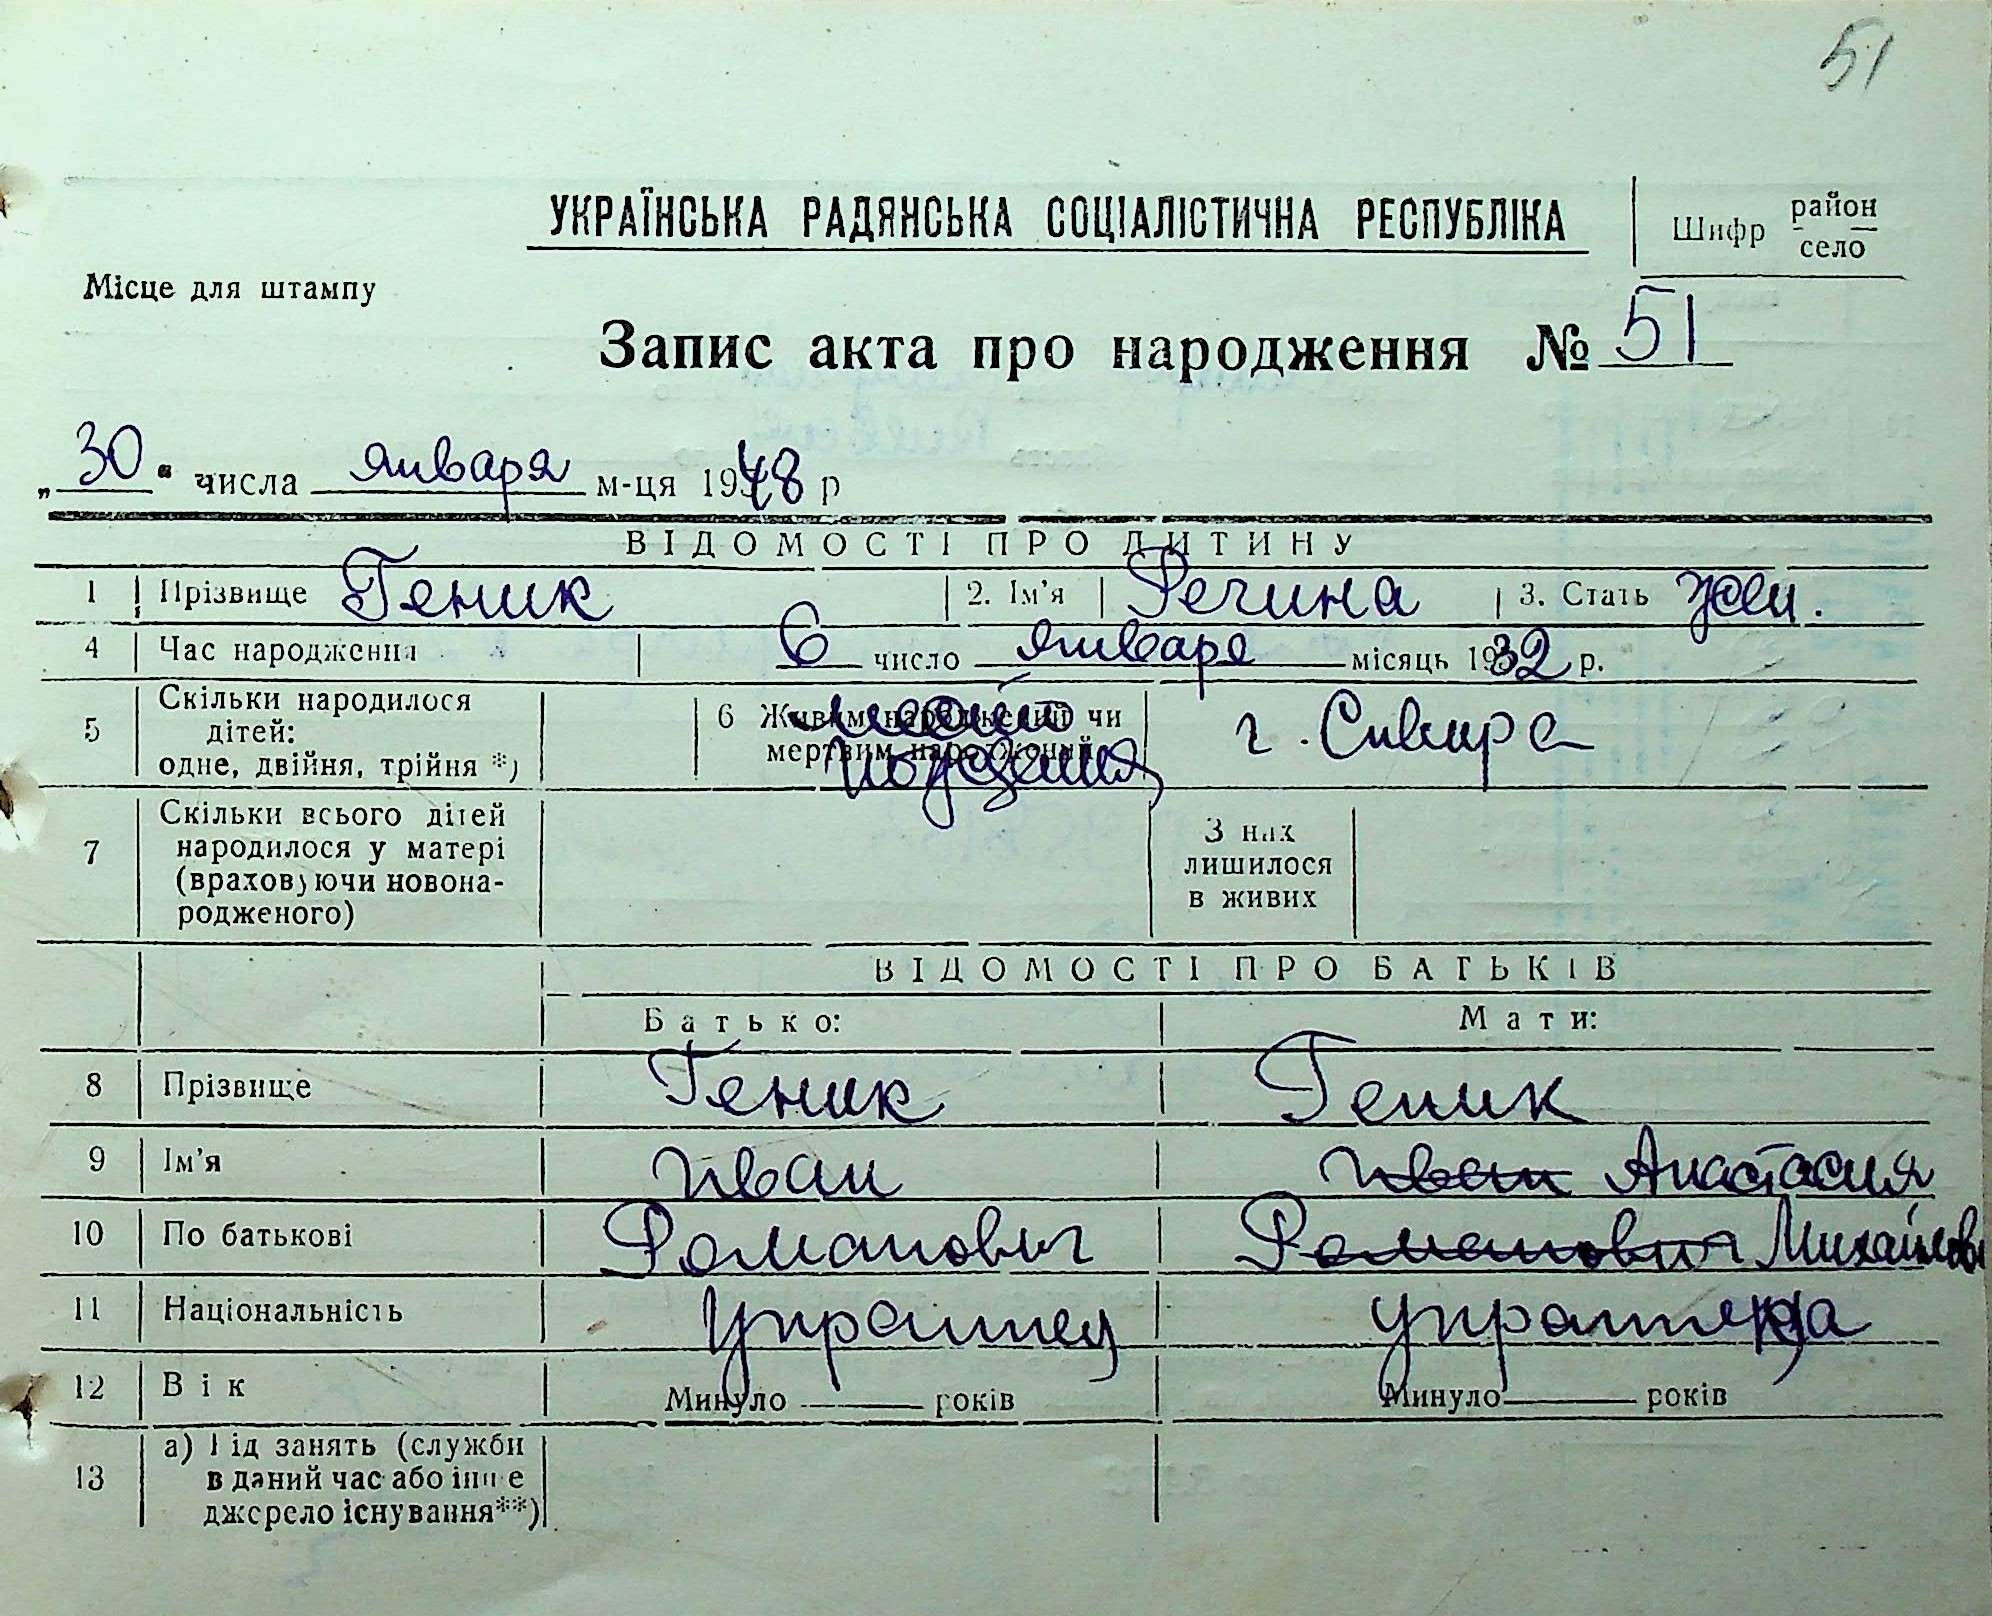 51
УКРАЇНСЬКА РАДЯНСЬКА СОЦІАЛІСТИЧНА РЕСПУБЛІКА
Шифр район село
Місце для штампу
Запис акта про народження № 51
„30“ числа января м-ця 1948 р
ВІДОМОСТІ ПРО ДИТИНУ
1 Прізвище Геник 2. Ім'я Регина 3. Стать жен.
4 Час народження 6 число января місяць 1932 р.
5 Скільки народилося дітей: одне, двійня, трійня *) 6 Живим народжений чи мертвим народжений место рождения г. Сквира
7 Скільки всього дітей народилося у матері (враховуючи новонародженого) З них лишилося в живих
ВІДОМОСТІ ПРО БАТЬКІВ
Батько: Мати:
8 Прізвище Геник Геник
9 Ім'я Иван Иван Анастасия
10 По батькові Романович Романовия Михайлов
11 Національність Украинец украинка
12 Вік Минуло років Минуло років
13 а) Рід занять (служби
в даний час або інше
джерело існування**)